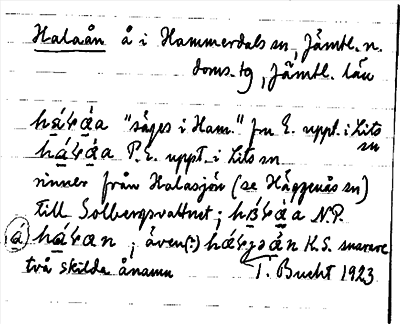 Halaån å i Hammerdals sn, Jämtl. n.
doms. tg, Jämtl. län
"säges i Ham." fr. E. uppt. i Lits
sn
P.E. uppt. i Lits sn
rinner från Halasjön (se Häggenås sn)
till Solbergsvattnet; N.P.
(å) ; även(?) K.S. snarare
två skilda ånamn T. Bucht 1923